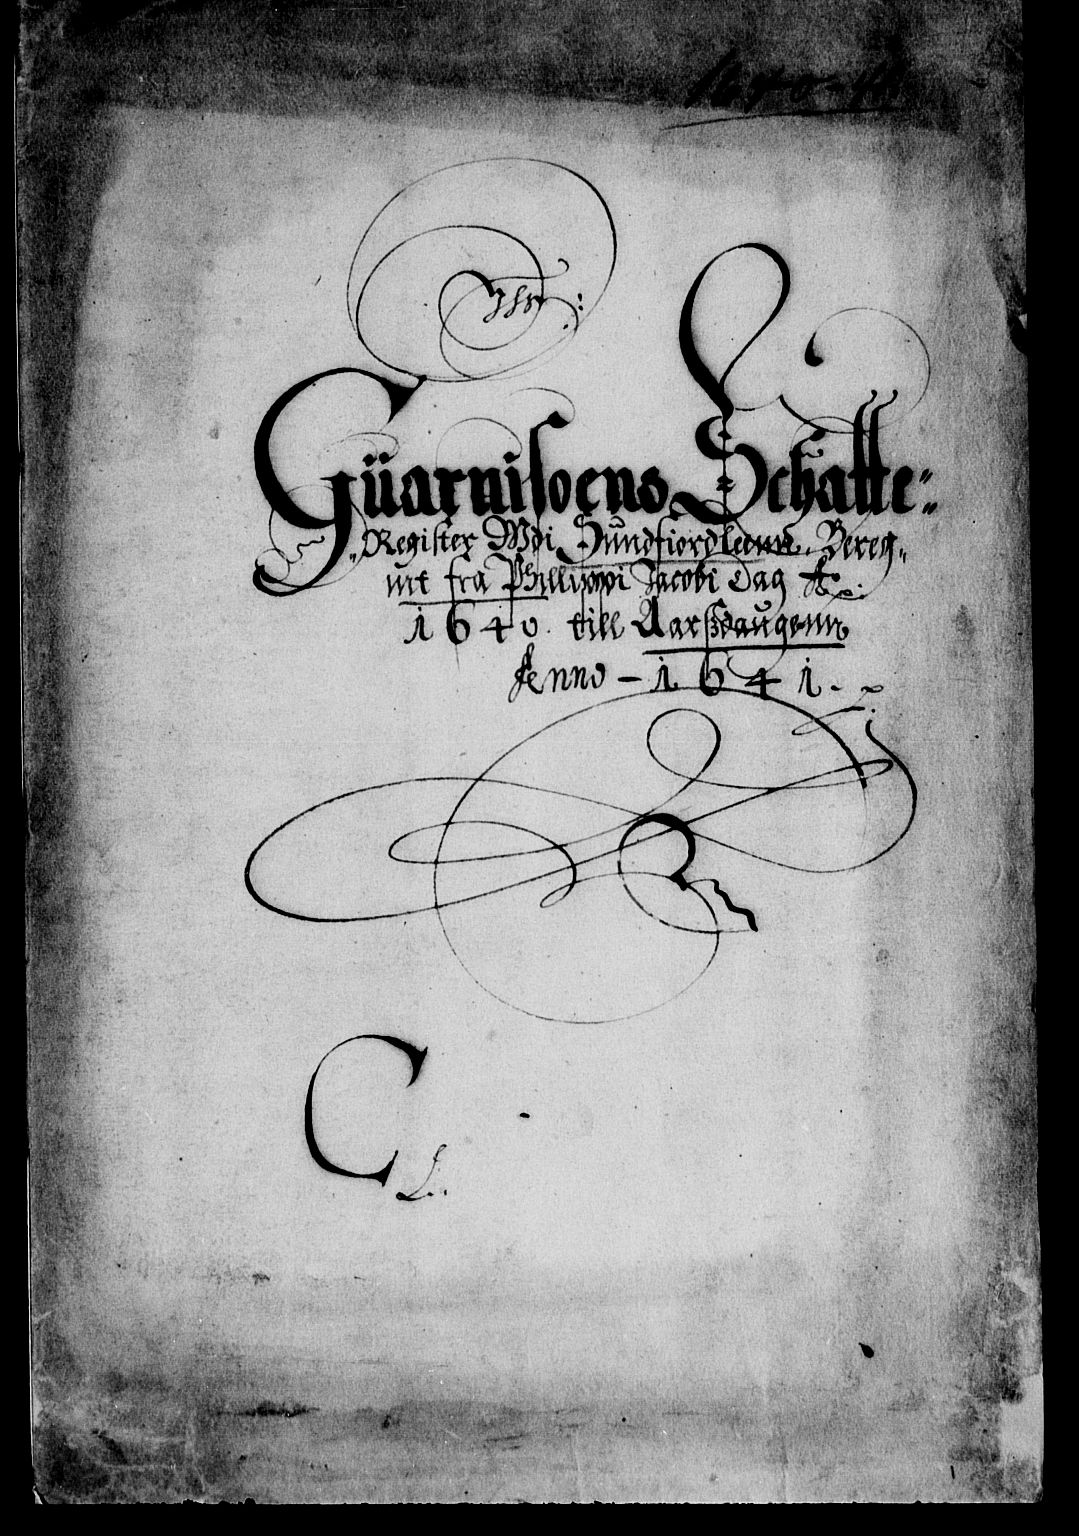 1640-41
Ihs:
Guarnisoens Schatte=
Register Wdi Sundfiordleenn, Bereg=
nit fra Phillippi Jacobi Dag Ao.
1640. till Aarssdaugenn
Anno – 1641.
C